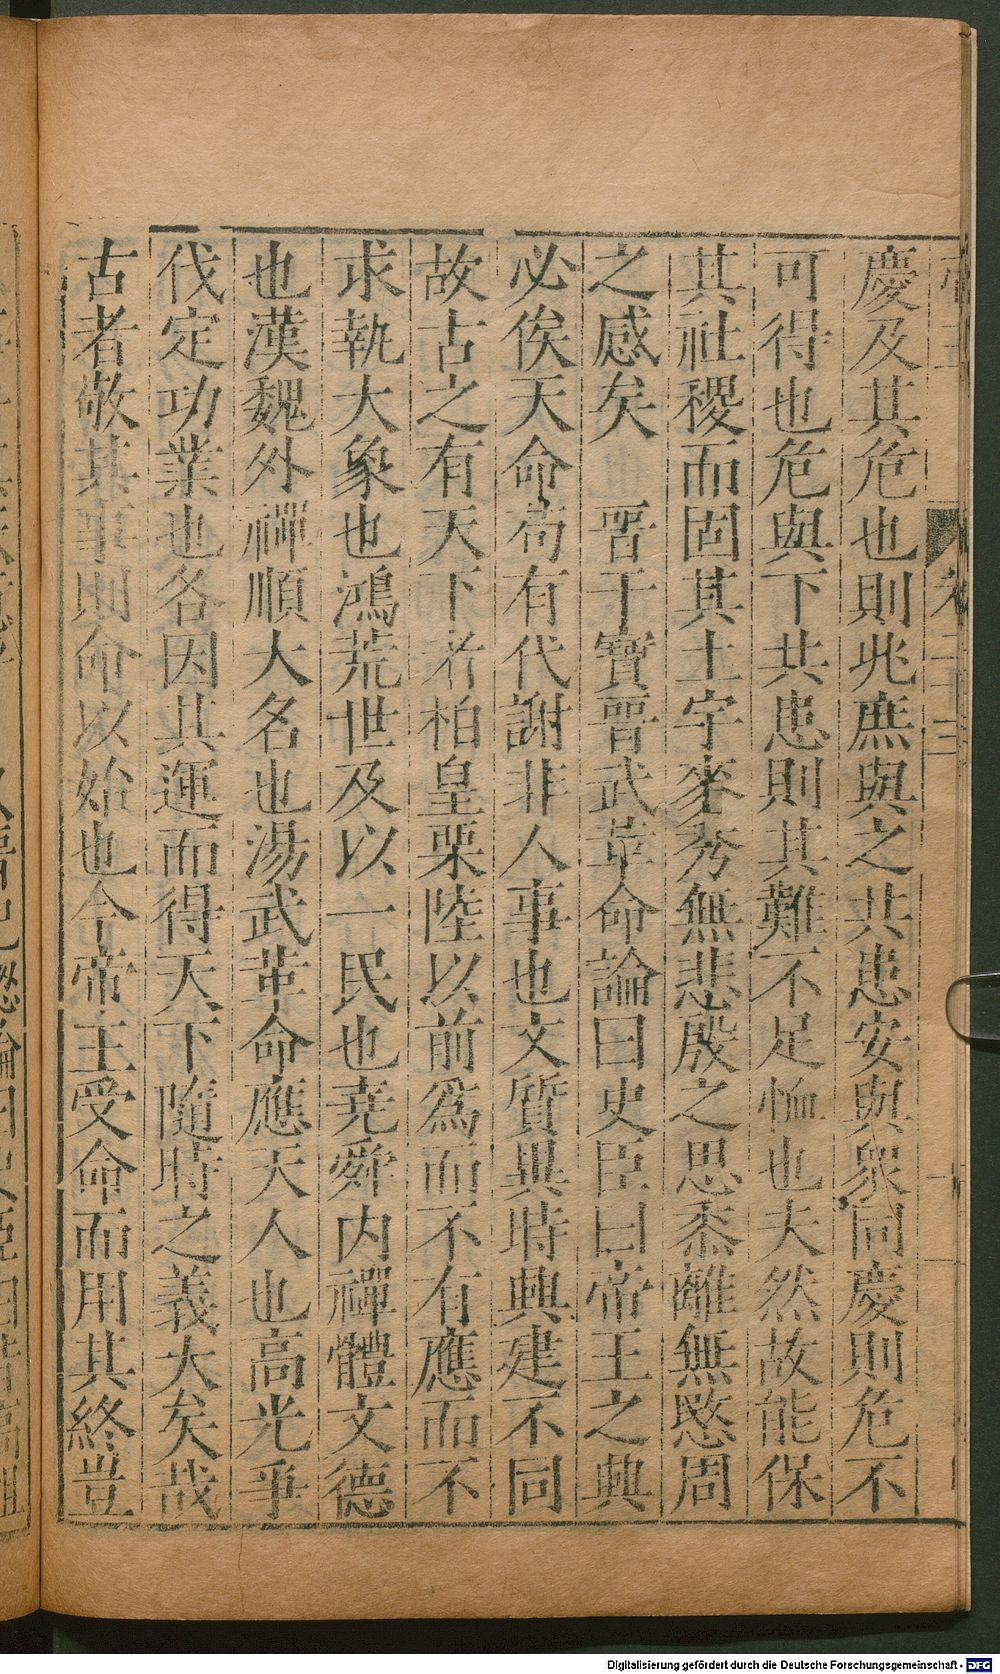 慶及其危也則兆庶與之共患安與衆同慶則危不
可得也危與下共患則其難不足恤也夫然故能保
其社稷而固其土宇麥秀無悲殷之思黍離無愍周
之感矣　晋干寳晋武革命論曰史臣曰帝王之興
必俟天命苟有代謝非人事也文質異時興建不同
故古之有天下者柏皇栗陸以前爲而不有應而不
求執大象也鴻荒世及以一民也堯舜内禪體文德
也漢魏外禪順大名也湯武革命應天人也高光爭
伐定功業也各因其運而得天下隨時之義大矣哉
古者敬其事則命以始也今帝王受命而用其終豈
Digitalisierung gefördert durch die Deutsche Forschungsgemeinschaft - DFG